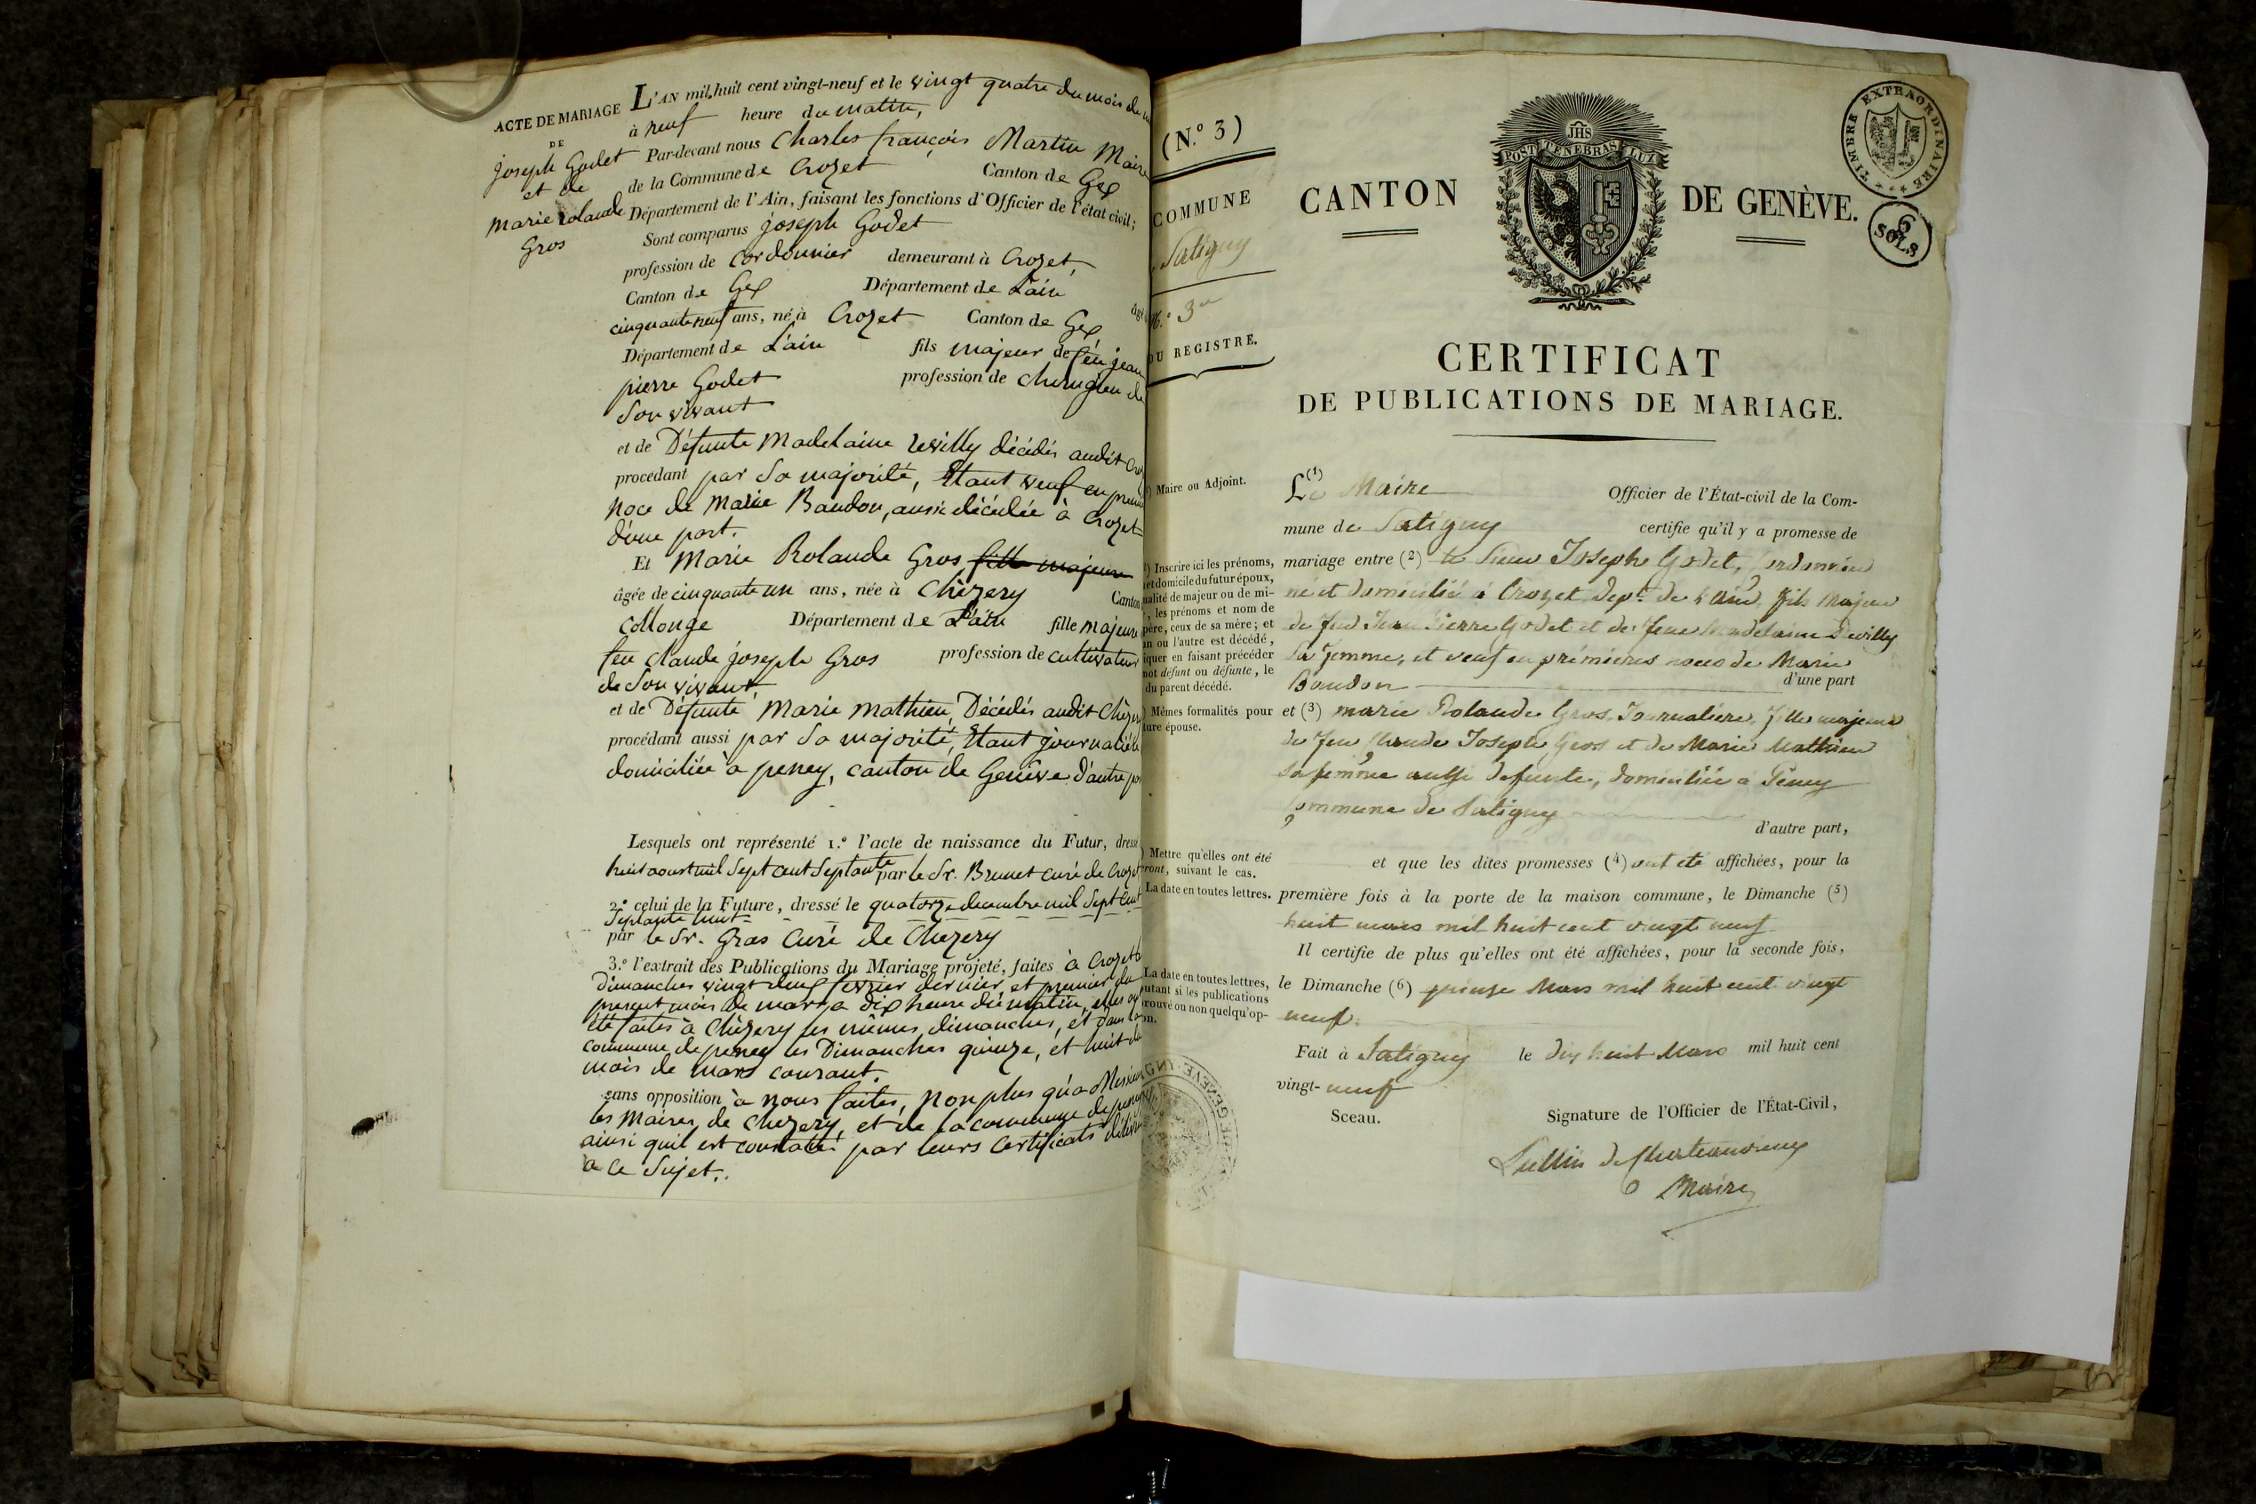 ACTE DE MARIAGE
DE
joseph Godet
et de
Marie rolande
Gros
L'AN mil huit cent vingt-neuf et le vingt quatre du mois de
à neuf heure du matin,
Par-devant nous Charles françois Martin Maire
de la Commune de Crozet Canton de Gex
Département de l'Ain, faisant les fonctions d'Officier de l'état civil;
Sont comparus joseph Godet
profession de cordonnier demeurant à Crozet,
Canton de Gex Département de L'ain âgé
cinquante neuf ans, né à Crozet Canton de Gex,
Département de L'ain fils majeur de feu jean
pierre Godet profession de chirurgien de
Son vivant
et de Défunte Madelaine devilly décédés audit
procédant par Sa majorité, Etant veuf en
noce de Marie Baudon, aussi décédée à Crozet
d'une part.
Et Marie Rolande Gros fille majeure
âgée de cinquante un ans, née à Chézery Canton
Collonge Département de L'ain fille majeure
feu claude joseph Gros profession de cultivateur
de Son vivant
et de Défunte Marie Mathieu, Décédés audit
procédant aussi par Sa majorité, Etant journalière
domiciliée à peney, canton de Genève d'autre
Lesquels ont représenté 1.º l'acte de naissance du Futur, dressé
huit aoust mil Sept cent Septante par le Sr. Brunet curé de Crozet
2.º celui de la Future, dressé le quatorze decembre mil Sept Cent
Septante huit
par le Sr. Gras Curé de Chezery
3.º l'extrait des Publications du Mariage projeté, faites à Crozet
Dimanches vingt deux fevrier dernier, et premier du
present mois de mars, a dix heure du matin, elles
été faites à Chézery les mêmes dimanches, et dans la
commune de peney les Dimanches quinze, et huit du
mois de mars courant.
sans opposition à nous faites, non plus qu'a Messieurs
les Maires de Chezery, et de la commune de peney
ainsi quil est constaté par leurs certificats délivrés
a ce Sujet.
(N.º 3)
COMMUNE
Satigny
N.º 3
DU REGISTRE.
POST TENEBRAS LUX
JHS
CANTON DE GENÈVE.
TIMBRE EXTRAORDINAIRE
6
SOLS
CERTIFICAT
DE PUBLICATIONS DE MARIAGE.
Maire ou Adjoint.
Le (1) Maire Officier de l'État-civil de la Com-
mune de Satigny certifie qu'il y a promesse de
Inscrire ici les prénoms,
et domicile du futur époux,
qualité de majeur ou de mi-
, les prénoms et nom de
père, ceux de sa mère; et
un ou l'autre est décédé,
iquer en faisant précéder
mot défunt ou défunte, le
du parent décédé.
mariage entre (2) le Sieur Joseph Godet, Cordonnier
né et domicilié à Crozet dept. de l'Ain, fils majeur
de feu Jean Pierre Godet et de feue Madelaine Devilly
sa femme, et veuf en prémieres noces de Marie
Baudon d'une part
Mêmes formalités pour
ture épouse.
et (3) marie Rolande Gros, Journaliere, fille majeure
de feu Claude Joseph Gros et de Marie Mathieu
sa femme aussi defunte, domiciliée à Peney
Commune de Satigny
d'autre part,
Mettre qu'elles ont été
ront, suivant le cas.
et que les dites promesses (4) ont été affichées, pour la
La date en toutes lettres.
première fois à la porte de la maison commune, le Dimanche (5)
huit mars mil huit cent vingt neuf
Il certifie de plus qu'elles ont été affichées, pour la seconde fois,
La date en toutes lettres,
utant si les publications
trouvé ou non quelqu'op-
on.
le Dimanche (6) quinze Mars mil huit cent vingt
neuf.
Fait à Satigny le dix huit Mars mil huit cent
vingt-neuf
Sceau.
Signature de l'Officier de l'État-Civil,
Lullin de Chateauvieux
Maire